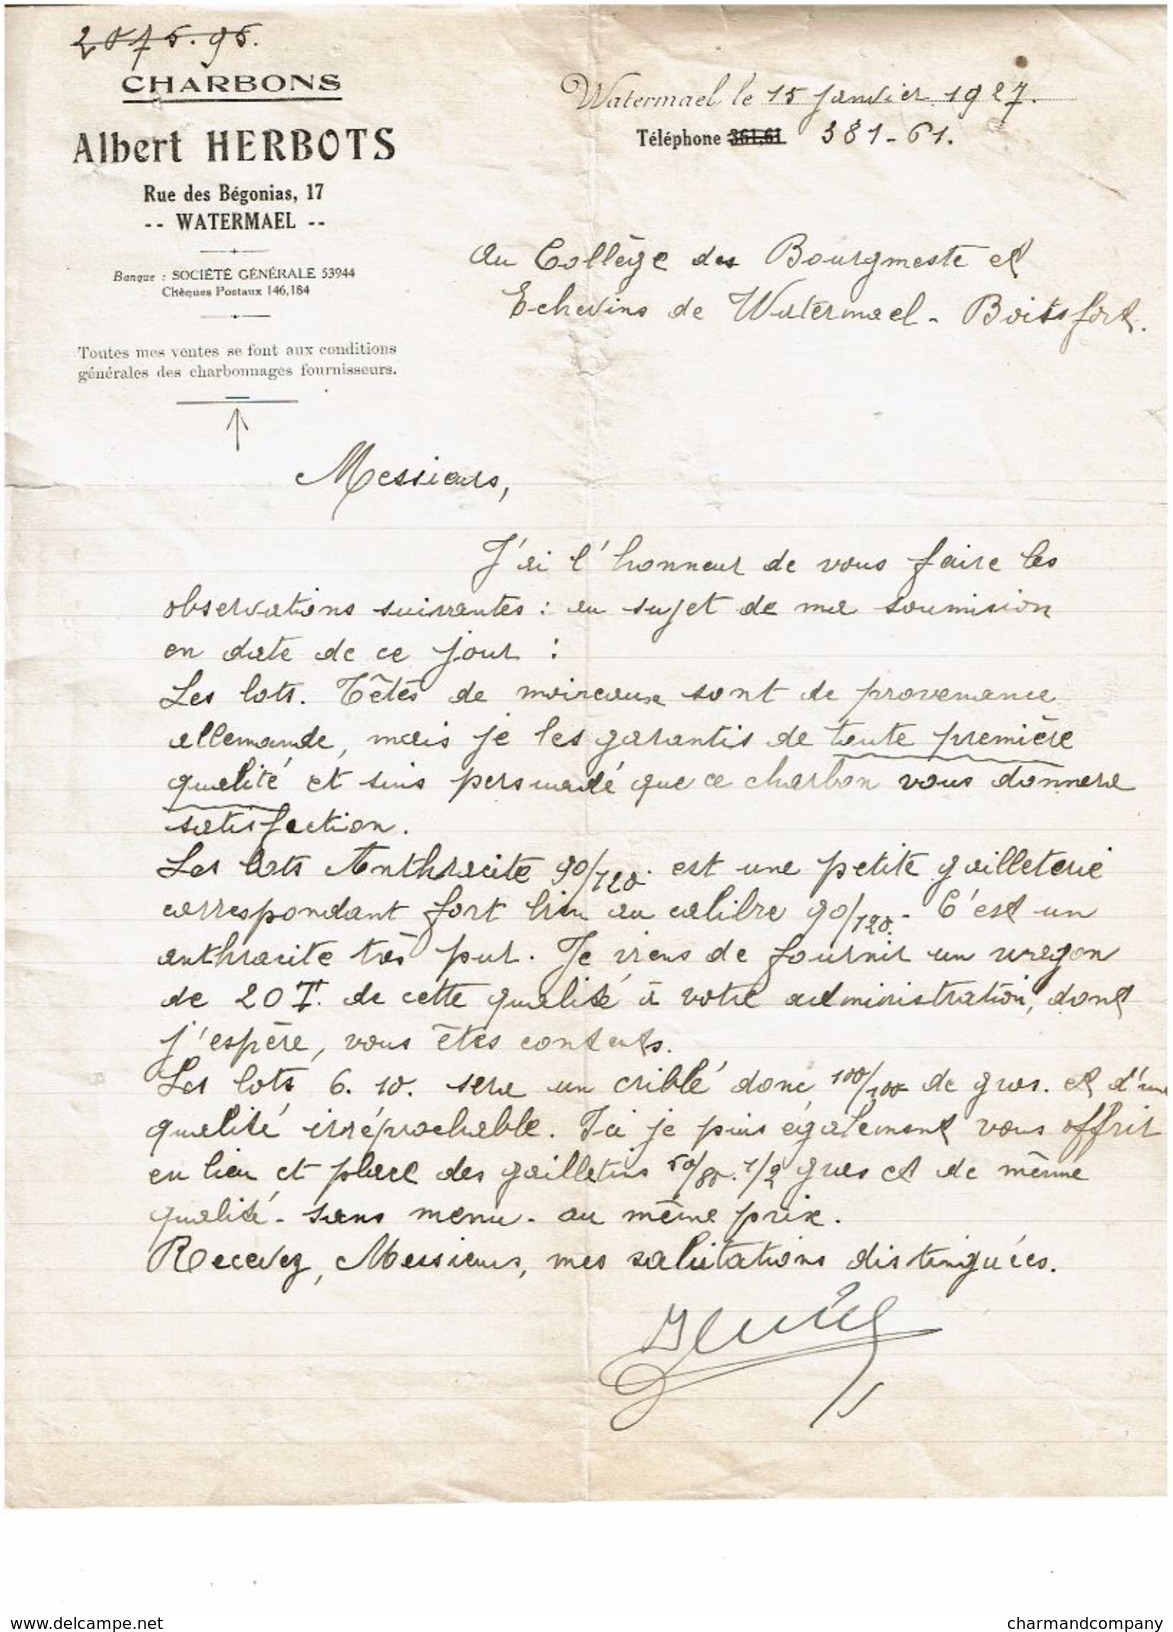 2075.95.
CHARBONS
Albert HERBOTS
Rue des Bégonias, 17
-- WATERMAEL --
Banque : SOCIÉTÉ GÉNÉRALE 53944
Chèques Postaux 146,184
Toutes mes ventes se font aux conditions
générales des charbonnages fournisseurs.
Watermael le 15 janvier 1927.
Téléphone 361,61 381-61.
Au Collège des Bourgmeste et
Echevins de Watermael - Boitsfort.
Messieurs,
J'ai l'honneur de vous faire les
observations suivantes : au sujet de ma soumision
en date de ce jour :
Les lots. Têtes de moineaux sont de provenance
allemande, mais je les garantis de toute première
qualité et suis persuadé que ce charbon vous donnera
satisfaction.
Les lots Anthracite 90/120. est une petite gailleterie
correspondant fort bien au calibre 90/120. - C'est un
anthracite très pur. Je viens de fournir un wagon
de 20 T. de cette qualité à votre administration, dont
j'espère, vous êtes contents.
Les lots 6. 10. sera un criblé donc 100/100 de gros. et d'une
qualité irréprochable. J'ai je puis également vous offrir
en lieu et place des gailletins 50/80. 1/2 gras et de même
qualité - sans menu - au même prix.
Recevez, Messieurs, mes salutations distinguées.
www.delcampe.net
charmandcompany